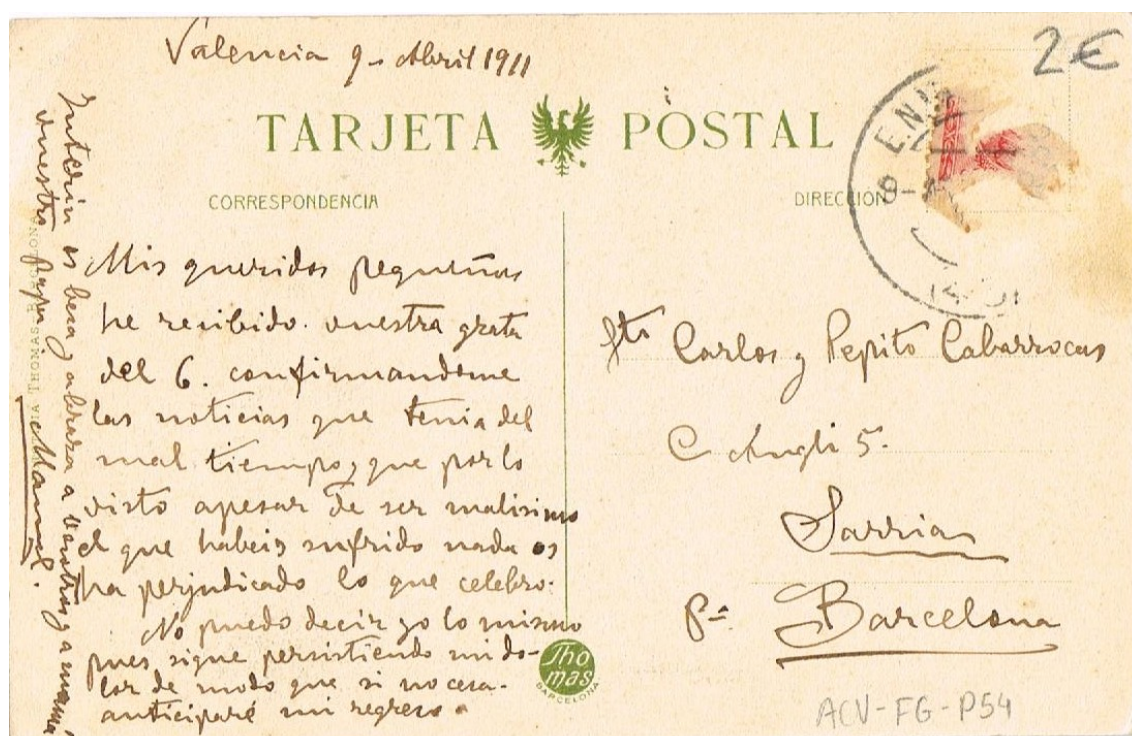 Valencia 9 - Abril 1911
2€
TARJETA POSTAL
CORRESPONDENCIA
DIRECCIÓN
ENIA
Mis queridos pequeños
he recibido vuestra grata
del 6. confirmandome
las noticias que tenia del
mal tiempo, que por lo
visto apesar de ser malisimo
el que habeis sufrido nada os
ha perjudicado lo que celebro.
No puedo decir yo lo mismo
pues sigue persistiendo mi do-
lor de modo que si no cesa
anticiparé mi regreso.
Interin os besa y abraza a vosotros y a mama
vuestro papa
Manuel.
Sto Carlos y Pepito Cabarrocas
C Angli 5.
Sarria
Pa Barcelona
Thomas
BARCELONA
THOMAS BARCELONA
ACV-FG-P54